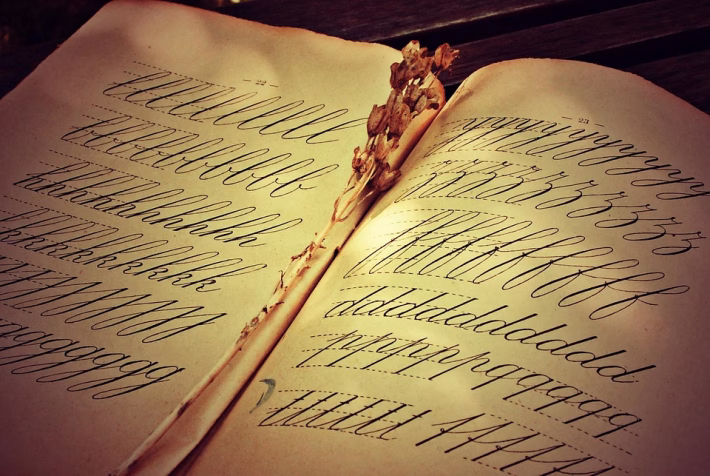 — 22 —
lllllllllllll
bbbbbbbbbb
hhhhhhhhhhh
kkkkkkkkkk
jjjjjjjjjj
gggggggggg
— 23 —
yyyyyyyyyyyy
zzzzzzzzzzz
ffffffffffff
dddddddddddd
ppppppqqqqqq
tttttt